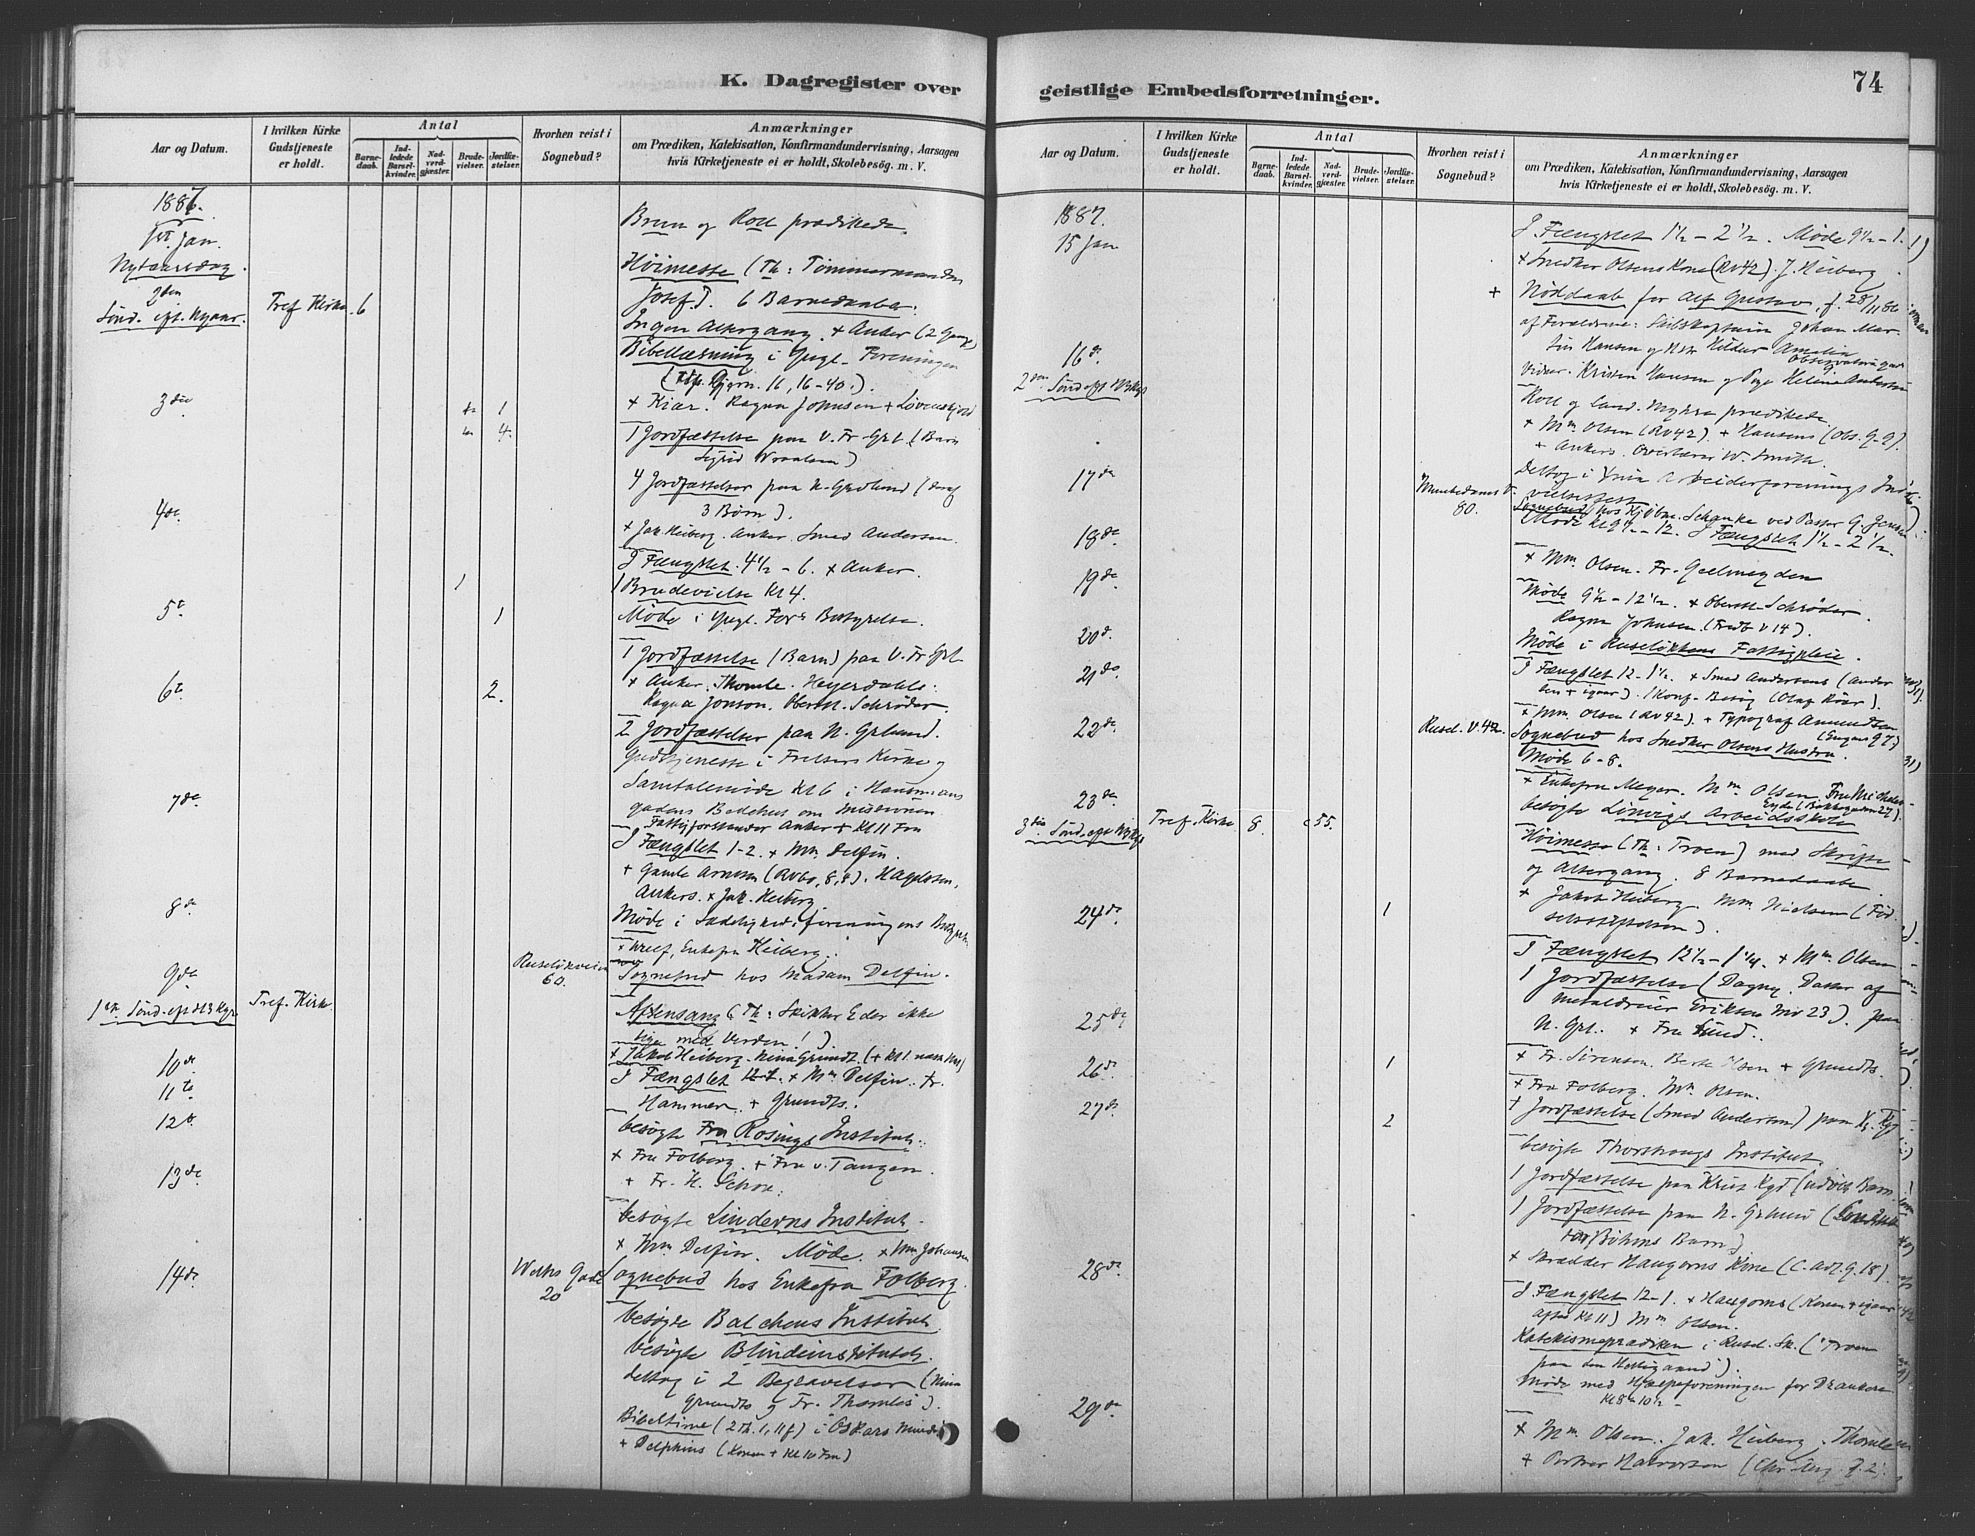 K. Dagregister over
Aar og Datum.
I hvilken Kirke Gudstjeneste er holdt.
Antal
Barnedaab.
Indledede Barselkvinder.
Nadverdgjæster.
Brudevielser.
Jordfæstelser.
Hvorhen reist i Sognebud?
Anmærkninger
om Prædiken, Katekisation, Konfirmandundervisning, Aarsagen
hvis Kirketjeneste ei er holdt, Skolebesøg. m. V.
1887.
1st. Jan.
Nytaarsdag.
Brun og Roll prædikede.
2den
Sønd. eft. Nytaar.
Tref. Kirke
6
Høimesse (Th: Tømmermanden
Josef). 6 Barnedaaba.
Ingen Altergang. + Anker (2 Gange)
Bibellæsning i Yngl. Foreningen
16, 16-40.).
3die
+ Kiær. Ragna Johnsen + Løvenskjold
1
4.
1 Jordfæstelse paa V. Fr Grl. (Barn
Sigrid
4 Jordfæstelser paa N. Grlund (deraf
3 Børn).
4de.
+ Jak. Heiberg. Anker. Smed Andersen.
I Fængslet. 4½ - 6. + Anker.
1
1 Brudevielse Kl 4.
5t.
1
Møde i Yngl. For's Bestyrelse.
1 Jordfæstelse (Barn) paa V. Fr Grl.
6te
2.
+ Anker. Thomle. Heyerdahls.
Ragna Jonson. Oberstl. Schrøder.
2 Jordfæstelser paa N. Grlund.
Gudstjeneste i Frelsers Kirke og
Samtalemøde Kl 6 i Hausmans
gadens Bedehus om Missionen
7de
Fattigforstander Anker + Kl 11 Fm
I Fængslet 1-2. + Mm. Delfin.
+ Gamle Arnesen
Ankers. + Jak. Heiberg
8de
Møde i Sædelighedsforeningens
Enkefru Heiberg.
9de
Ruseløkveien
60.
Sognebud hos Madam Delfin.
1ste Sønd. eft. H3Kgr.
Tref. Kirke
Aftensang (Th: Skikker Eder ikke
lige med Verden!).
10de
+ Jakob Heiberg. Nina Grundt.
11te
I Fængslet 12-1. + Mm Delfin. Fr.
Hammer. + Grundts.
12te
besøgte Fru Rosings Institut.
+ Fru Folberg. + Fru v. Tangen.
13de
+ Fr. H. Schou.
besøgte Linderns Institut.
+ Mm Delfin. Møde. + Mm Johansen
14de
Welhs Gade
20
Sognebud hos Enkefru Folberg.
besøgte Balchens Institut.
besøgte Blindeinstitutet.
deltog i 2 Begravelser (Nina
Grundts og Fr. Thomles).
Bibeltime (2 Th. 1, 11 f) i Oskars Minde
+ Delphins (Konen + Kl 10 Fm)
geistlige Embedsforretninger.
74
Aar og Datum.
I hvilken Kirke Gudstjeneste er holdt.
Antal
Barnedaab.
Indledede Barselkvinder.
Nadverdgjæster.
Brudevielser.
Jordfæstelser.
Hvorhen reist i Sognebud?
Anmærkninger
om Prædiken, Katekisation, Konfirmandundervisning, Aarsagen
hvis Kirketjeneste ei er holdt, Skolebesøg. m. V.
1887.
15 Jan
I Fængslet 1½ - 2½. Møde 9½ - 1.
+ Snedker Olsens Kone (Rv 42). J. Heiberg
+ Nøddaab for Alf Gustav, f. 28/11 86
af Forældrene: Skibskaptein Johan Mar-
tin Hansen og Hstr Hilda Amalia
16d.
Vidner. Kristen Hansen og Pige Helene Andersen
2den Sønd. eft H3Kgr
Roll og Cand. Myhra prædikede.
+ Mm Olsen (Rv 42). + Hansens (Obs. G. 9).
+ Ankers. Overlærer W. Smith.
17de
Deltog i Vika Arbeiderforenings Ind-
vielsesfest.
Munkedams V.
80.
Sognebud hos Kjøbm. Schanke ved Pastor G. Jensen
18de
Møde Kl 9½ - 12. I Fængslet 1½ - 2½.
+ Mm. Olsen. Fr. Geelmuyden
19de
Møde 9½ - 12½. + Oberstl. Schrøder.
Ragna Johnsen. (Fredb V 14).
20d.
Møde i Ruseløkkens Fattigpleie.
21de
I Fængslet 12 - 1½. + Smed Andersens (Ander
sen + igaar). 1 Konf. Besøg (Olaf Röer).
22de
+ Mm. Olsen (Rv 42). + Typograf Amundsen
Rusel. V. 42.
Sognebud hos Snedker Olsens Hustru.
Møde 6-8.
23de
+ Enkefru Meyer. Mm Olsen.
besøgte Linvigs Arbeidsskole
3die Sønd. eft H3Kgr
Tref. Kirke
8.
c 55.
Høimesse (Th: Troen) med Skrifte
og Altergang. 8 Barnedaab.
24de
1
+ Jakob Heiberg. Mm. Nielsen (Fød
selsstiftelsen).
I Fængslet 12½ - 1¼. + Mm Olsen
1 Jordfæstelse (Dagny. Datter af
Metaldreier Eriksen Mv 23). paa
25de
N. Grl. + Fru Lund.
26de
1
+ Fr. Sørensen. + Grundts.
+ Fru Folberg. Mm Olsen.
27de
2
1 Jordfæstelse (Smed Andersen) paa
besøgte Thorshaugs Institut.
1 Jordfæstelse paa Krist Kgd (udøbt Barn
1 Jordfæstelse paa N. Grlund
Bøhms Barn)
28de
+ Skrædder Haugerns Kone (C. Ad. G. 18).
I Fængslet 12-1. + Haugerns (Konen + igaar
aftes Kl 11) Mm Olsen.
Katekismeprædiken i Rusel. Sk. ("Troen
paa den Helligaand").
Møde med Hjælpeforeningen for Drankere
Kl 8 - 10½ -
29de
+ Mm Olsen. Jak. Heiberg. Thomle
+ Portner Halvorsen